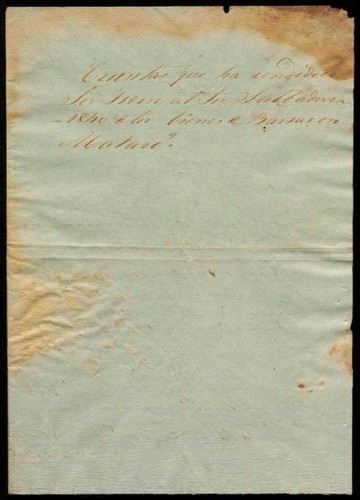 Cuentas que ha rendido
Sor Isern al Sor Salbador en
1840 de los bienes de Barsa en
Mataró.